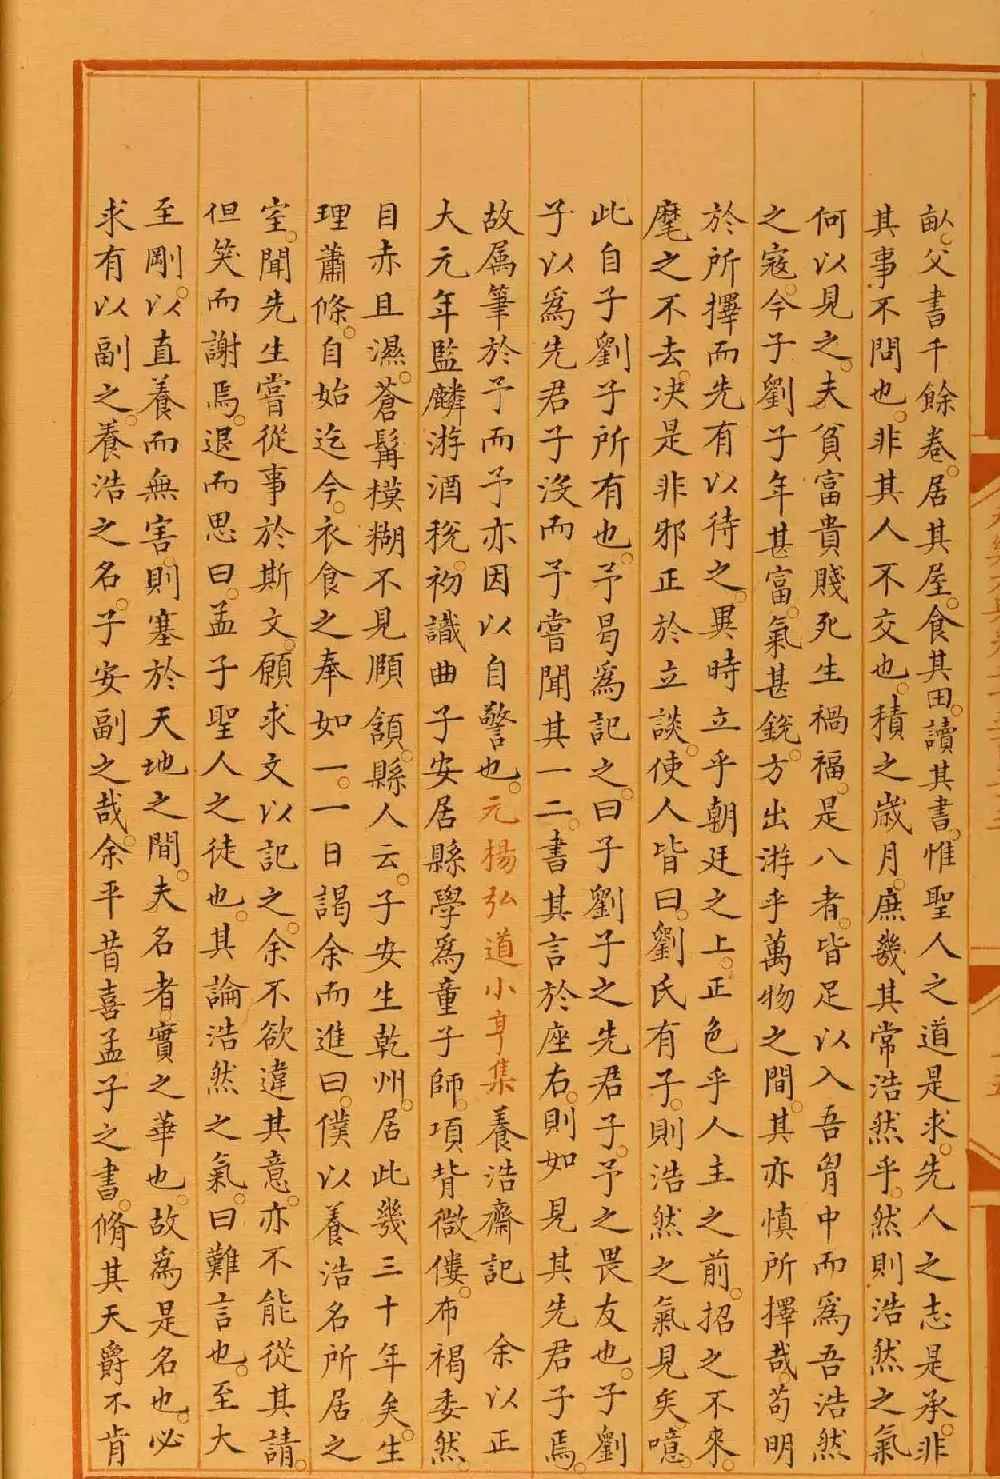 畝。父書千餘卷。居其屋。食其田。讀其書。惟聖人之道是求。先人之志是承。非
其事不問也。非其人不交也。積之歲月。庶幾其常浩然乎。然則浩然之氣
何以見之。夫貧富貴賤死生禍福。是八者。皆足以入吾胷中而爲吾浩然
之寇。今子劉子年甚富。氣甚銳。方出游乎萬物之間。其亦慎所擇哉。苟明
於所擇而先有以待之。異時立乎朝廷之上。正色乎人主之前。招之不來。
麾之不去。决是非邪正於立談。使人皆曰。劉氏有子。則浩然之氣見矣。噫
此自子劉子所有也。予曷爲記之。曰子劉子之先君子。予之畏友也。子劉
子以爲先君子沒而予嘗聞其一二。書其言於座右。則如見其先君子焉。
故属筆於予而予亦因以自警也。元楊弘道小亨集養浩齋記 余以正
大元年監麟游酒稅。初識曲子安居縣學爲童子師。項背微僂。布褐委然。
目赤且濕。蒼髯模糊不見順頷。縣人云。子安生乾州。居此幾三十年矣。生
理蕭條。自始迄今。衣食之奉如一。一日謁余而進曰。僕以養浩名所居之
室。聞先生嘗從事於斯文。願求文以記之。余不欲違其意。亦不能從其請。
但笑而謝焉。退而思曰。孟子聖人之徒也。其論浩然之氣。曰難言也。至大
至剛。以直養而無害。則塞於天地之間。夫名者。實之華也。故爲是名也。必
求有以副之。養浩之名。子安副之哉。余平昔喜孟子之書。脩其天爵不肯